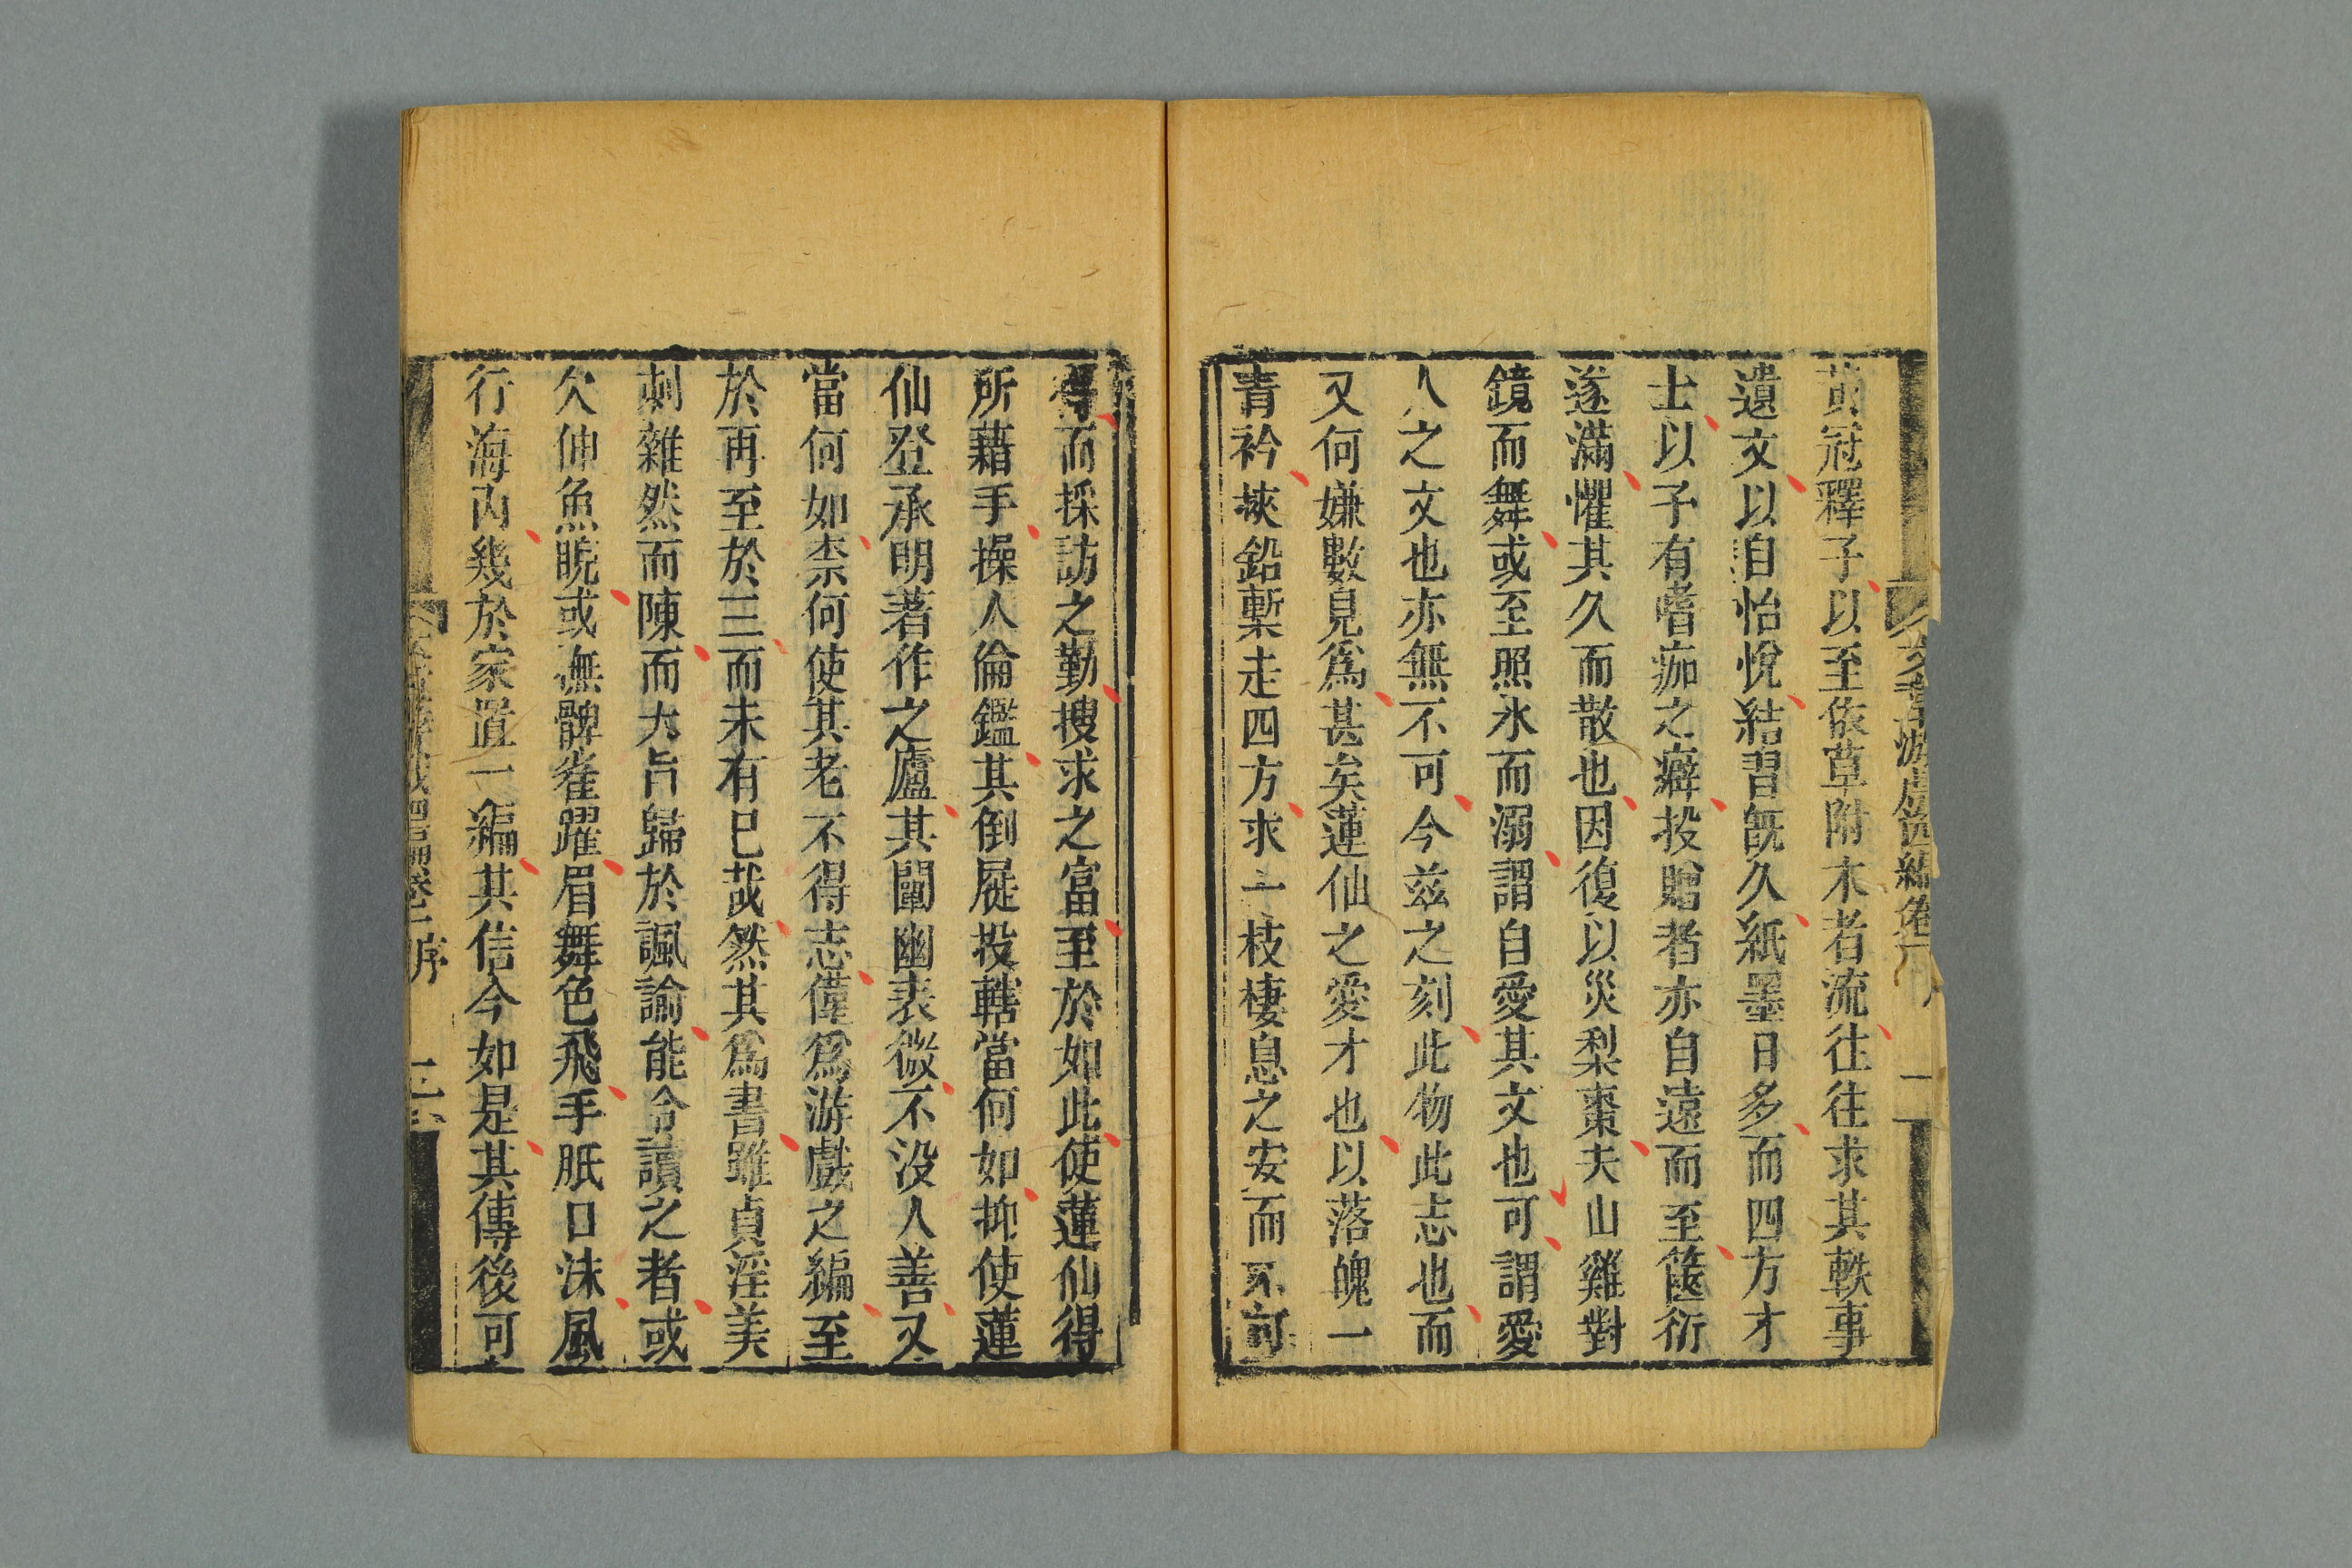 黃冠釋子以至依草附木者流往往求其軼事
遺文以自怡悅結習既久紙墨日多而四方才
士以子有嗜痂之癖投贈者亦自遠而至篋衍
遂滿懼其久而散也因復以災梨棗夫山雞對
鏡而舞或至照水而溺謂自愛其文也可謂愛
人之文也亦無不可今兹之刻此物此志也而
又何嫌數見爲甚矣蓮仙之愛才也以落魄一
青衿挾鉛槧走四方求一枝棲息之安而不可
得而採訪之勤搜求之富至於如此使蓮仙得
所藉手操人倫鑑其倒屣投轄當何如抑使蓮
仙登承明著作之廬其闡幽表微不没人善又
當何如柰何使其老不得志僅爲游戲之編至
於再至於三而未有已哉然其爲書雖貞淫美
刺雜然而陳而大旨歸於諷諭能令讀之者或
欠伸魚睨或撫髀雀躍眉舞色飛手胝口沫風
行海内幾於家置一編其信今如是其傳後可
序